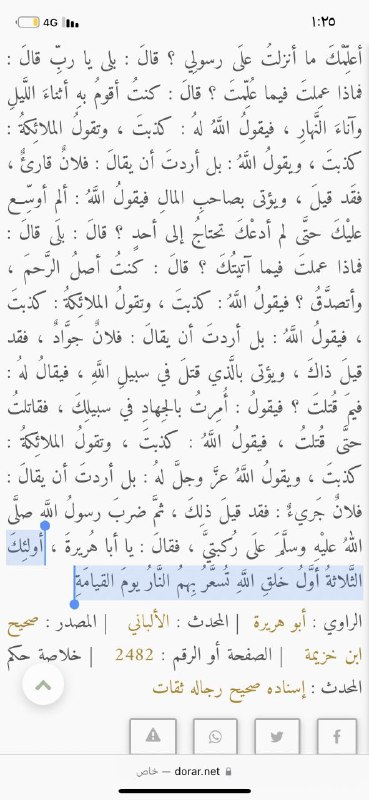 ١:٢٥
4G
أعلِّمْكَ ما أنزلتُ علَى رسولِي ؟ قالَ : بلى يا ربِّ قالَ :
فماذا عمِلتَ فيما عُلِّمتَ ؟ قالَ : كنتُ أقومُ بهِ أثناءَ اللَّيلِ
وآناءَ النَّهارِ ، فيقولُ اللَّهُ لهُ : كذبتَ ، وتقولُ الملائِكةُ :
كذبتَ ، ويقولُ اللَّهُ : بل أردتَ أن يقالَ : فلانٌ قارئٌ ،
فقَد قيلَ ، ويؤتى بصاحبِ المالِ فيقولُ اللَّهُ : ألم أوسِّع
عليْكَ حتَّى لم أدعْكَ تحتاجُ إلى أحدٍ ؟ قالَ : بلَى قالَ :
فماذا عملتَ فيما آتيتُكَ ؟ قالَ : كنتُ أصلُ الرَّحمَ ،
وأتصدَّقُ ؟ فيقولُ اللَّهُ : كذبتَ ، وتقولُ الملائِكةُ : كذبتَ
، فيقولُ اللَّهُ : بل أردتَ أن يقالَ : فلانٌ جوَّادٌ ، فقد
قيلَ ذاكَ ، ويؤتى بالَّذي قتلَ في سبيلِ اللَّهِ ، فيقالُ لهُ :
فيمَ قُتلتَ ؟ فيقولُ : أُمِرتُ بالجِهادِ في سبيلِكَ ، فقاتلتُ
حتَّى قُتلتُ ، فيقولُ اللَّهُ : كذبتَ ، وتقولُ الملائِكةُ :
كذبتَ ، ويقولُ اللَّهُ عزَّ وجلَّ لهُ : بل أردتَ أن يقالَ :
فلانٌ جَريءٌ : فقد قيلَ ذلِكَ ، ثمَّ ضربَ رسولُ اللَّهِ صلَّى
اللهُ عليْهِ وسلَّمَ علَى رُكبتيَّ ، فقالَ : يا أبا هُريرةَ ، أولئِكَ
الثَّلاثةُ أوَّلُ خَلقِ اللَّهِ تُسعَّرُ بِهمُ النَّارُ يومَ القيامَةِ
الراوي : أبو هريرة | المحدث : الألباني | المصدر : صحيح
ابن خزيمة | الصفحة أو الرقم : 2482 | خلاصة حكم
المحدث : إسناده صحيح رجاله ثقات
dorar.net — خاص